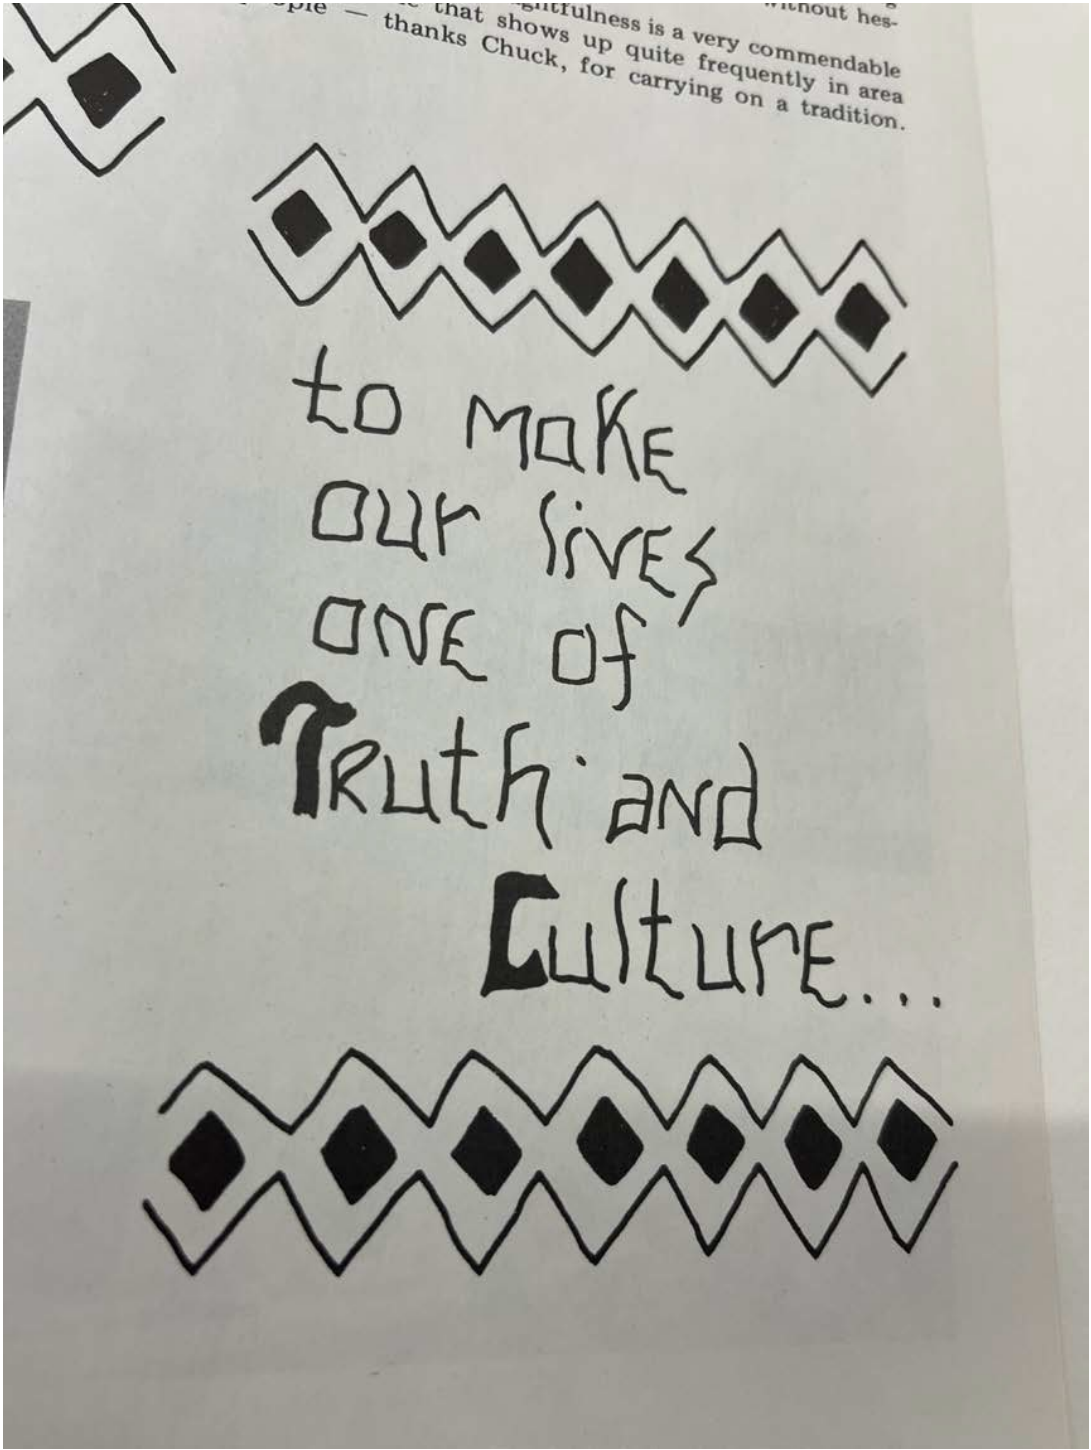 without hes-
is a very commendable
that shows up quite frequently in area
thanks Chuck, for carrying on a tradition.
to make
our lives
one of
Truth and
Culture...